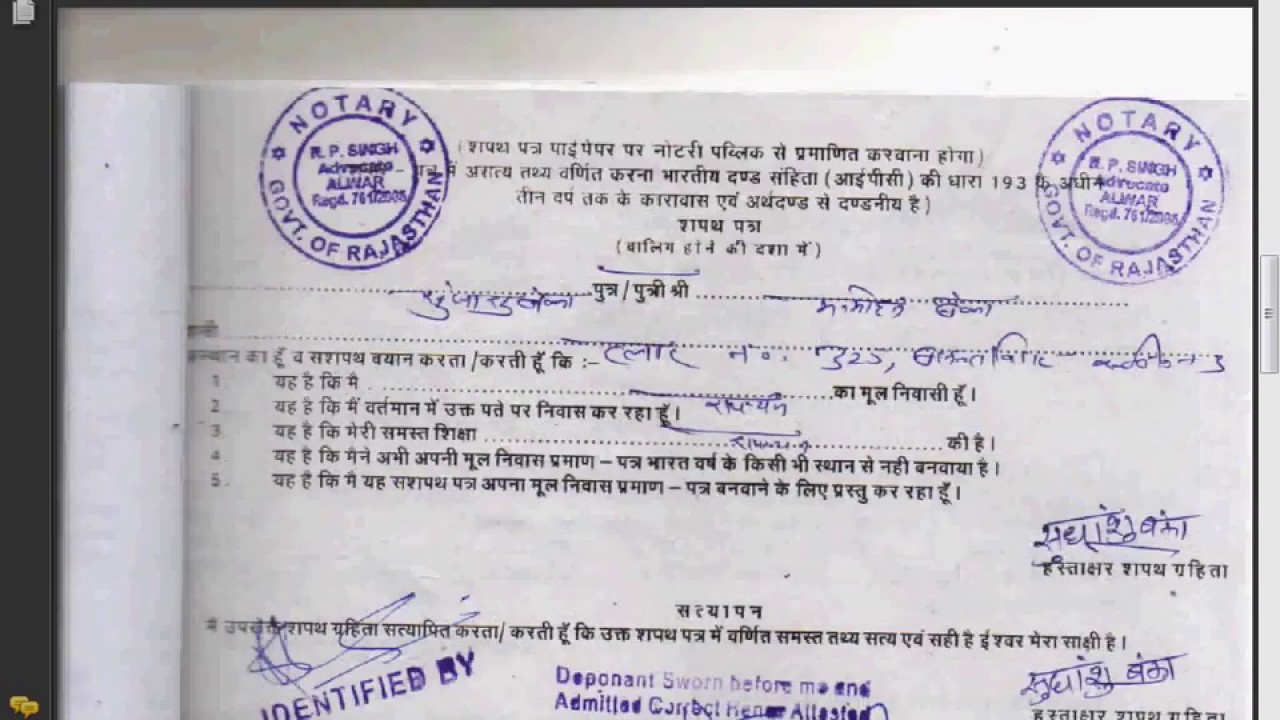 NOTARY
R. P. SINGH
Advocate
ALWAR
Regd. 761/2005
GOVT. OF RAJASTHAN
NOTARY
R. P. SINGH
Advocate
ALWAR
Regd. 761/2005
GOVT. OF RAJASTHAN
(शपथ पत्र पाई पेपर पर नोटरी पब्लिक से प्रमाणित करवाना होगा)
में असत्य तथ्य वर्णित करना भारतीय दण्ड संहिता (आईपीसी) की धारा 193 के अधीन
तीन वर्ष तक के कारावास एवं अर्थदण्ड से दण्डनीय है)
शपथ पत्र
(बालिग होने की दशा में)
पुत्र/पुत्री श्री
प्लाट नं०: 325,
का हूँ व सशपथ बयान करता/करती हूँ कि :-
1. यह है कि मै ........ का मूल निवासी हूँ।
2. यह है कि मैं वर्तमान में उक्त पते पर निवास कर रहा हूँ।
3. यह है कि मेरी समस्त शिक्षा ........ की है।
4. यह है कि मैने अभी अपनी मूल निवास प्रमाण – पत्र भारत वर्ष के किसी भी स्थान से नही बनवाया है।
5. यह है कि मै यह सशपथ पत्र अपना मूल निवास प्रमाण – पत्र बनवाने के लिए प्रस्तु कर रहा हूँ।
सुधांशु बंका
हस्ताक्षर शपथ ग्रहिता
सत्यापन
मैं उपरोक्त शपथ ग्रहिता सत्यापित करता/करती हूँ कि उक्त शपथ पत्र में वर्णित समस्त तथ्य सत्य एवं सही है ईश्वर मेरा साक्षी है।
IDENTIFIED BY
Deponant Sworn before me and
Admitted Correct Hence Attested
सुधांशु बंका
हस्ताक्षर शपथ ग्रहिता